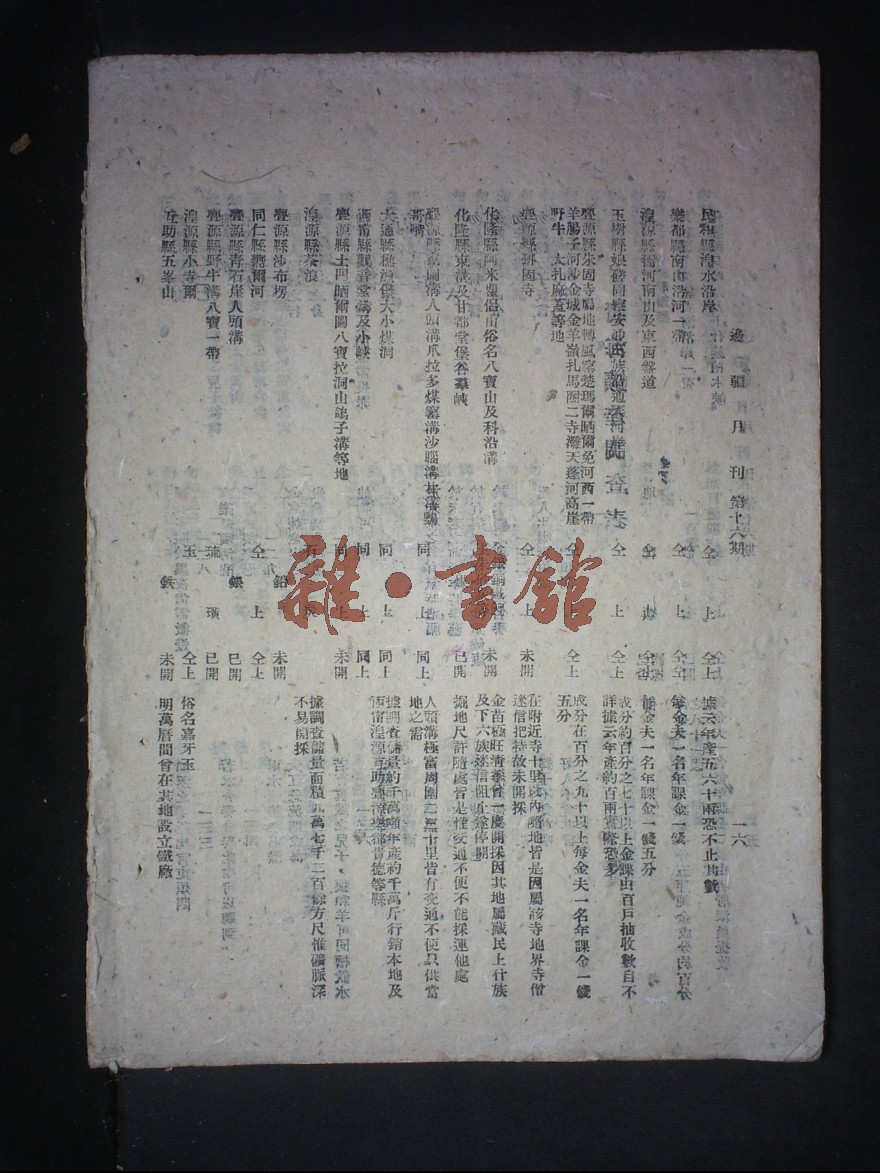 邊疆月刊 第十六期 一六
民和縣湟水沿岸 仝上 仝上 據云年產五六十兩恐不止其數
樂都縣南山沿河一帶 仝上 仝上 每金夫一名年課金一錢
湟源縣 河南山及東西磐道 每金夫一名年課金一錢五分
玉樹縣娘 仝上 仝上 成分約百分之七十以上金課由百戶抽收數自不
詳據云年產約百兩實際恐多
亹源縣朱固寺屬地轉風窰楚瑪爾晒爾免河西一帶 仝上 仝上 成分在百分之九十以上每金夫一名年課金一錢
羊腸子河沙金城金羊嶺扎馬圈二寺灘天蓬河高崖 五分
野牛 大扎麻蓋等地
亹源縣 固寺 仝上 未開 在附近寺十里以內隨地皆是因屬該寺地界寺僧
迷信把持故未開採
化隆縣阿米 山俗名八寶山及科沿溝 未開 金苗極旺清季曾一度開採因其地屬藏民上什族
及下六族迷信阻止遂停開
化隆縣東溝及甘都堂堡谷 峽 已開 掘地尺許隨處皆是惟交通不便不能採運他處
亹源縣 溝人頭溝爪拉多煤窰溝沙腦溝 同上 同上 人頭溝極富周圍二三十里皆有交通不便只供當
地之需
大通縣樵漁堡大小煤洞 同上 同上 據調查儲量約千萬噸年產約千萬斤行銷本地及
西甯縣觀音堂溝及小峽 同上 同上 西甯湟源互助亹源樂都貴德等縣
亹源縣土門晒爾圖八寶拉洞山鴿子溝等地 同上 未開
湟源縣茶浪 據調查儲量面積九萬七千二百餘方尺惟礦脈深
不易開採
亹源縣沙布楞 鉛 未開
同仁縣 爾河 仝上 仝上
亹源縣青石崖人頭溝 銀 已開
亹源縣野牛溝八寶一帶 硫璜 已開
湟源縣小寺爾 玉 仝上 俗名嘉牙玉
互助縣五峯山 鉄 未開 明萬曆間曾在其地設立鐵廠
雜·書館